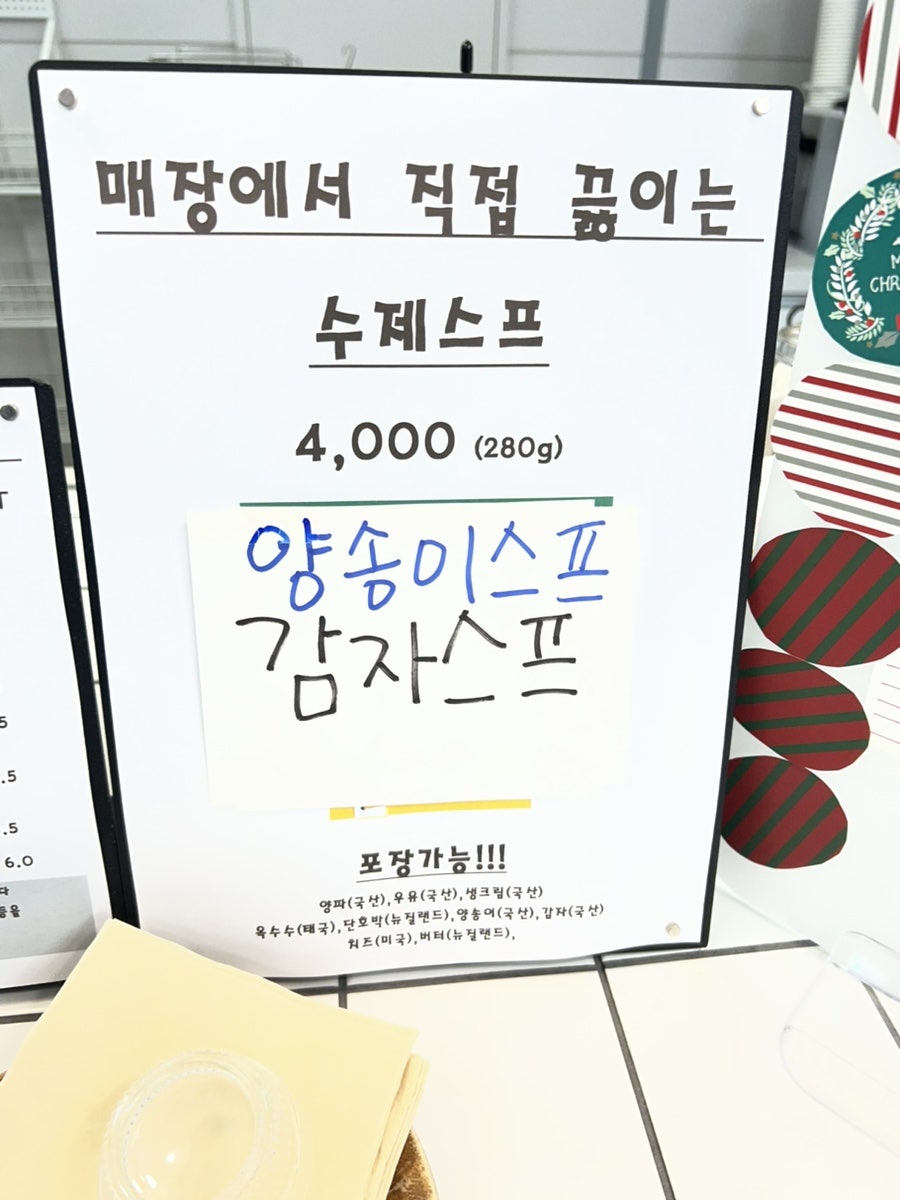 매장에서 직접 끓이는
수제스프
4,000 (280g)
양송이스프
감자스프
포장가능!!!
양파(국산),우유(국산),생크림(국산)
옥수수(태국),단호박(뉴질랜드),양송이(국산),감자(국산)
치즈(미국),버터(뉴질랜드),
.5
.5
6.0